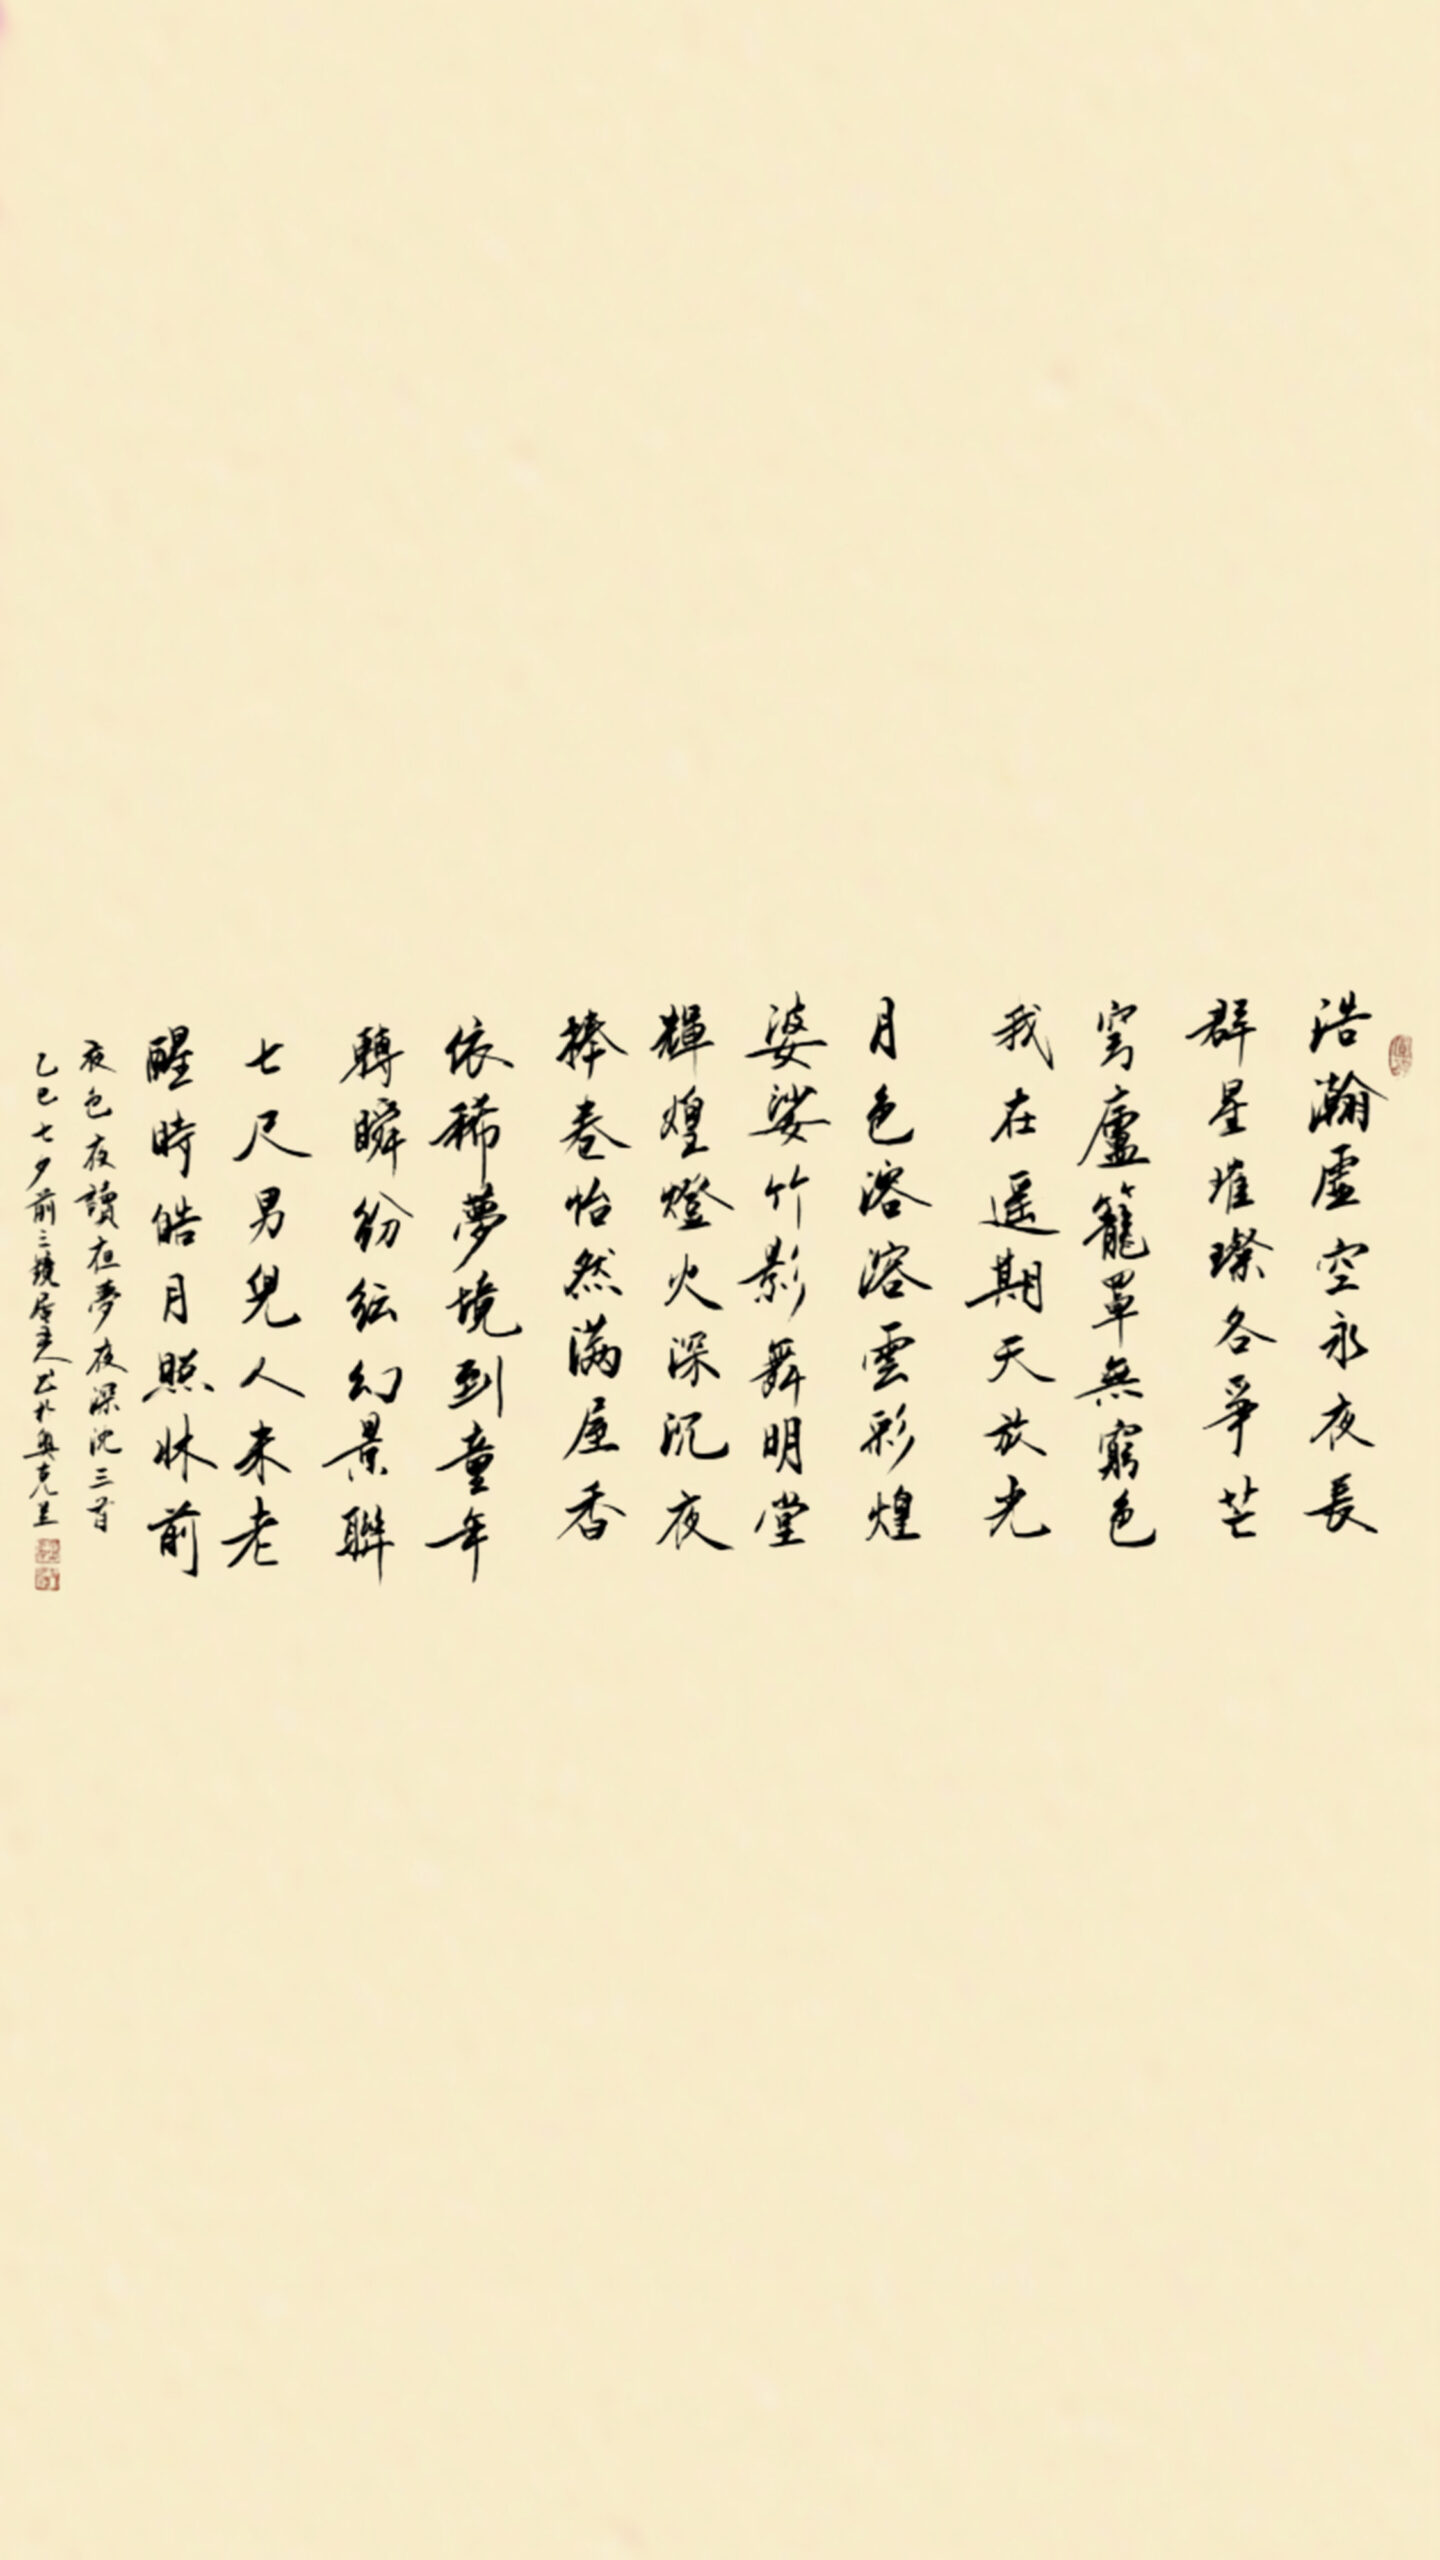 浩瀚虛空永夜長
群星璀璨各爭芒
穹廬籠罩無窮色
我在遥期天放光
月色溶溶雲彩煌
婆娑竹影舞明堂
輝煌燈火深沉夜
捧卷怡然满屋香
依稀夢境到童年
轉瞬紛紜幻景聯
七尺男兒人未老
醒時皓月照牀前
夜色夜讀夜夢夜深沈三首
乙巳七夕前三鏡屋主人书於奥克兰